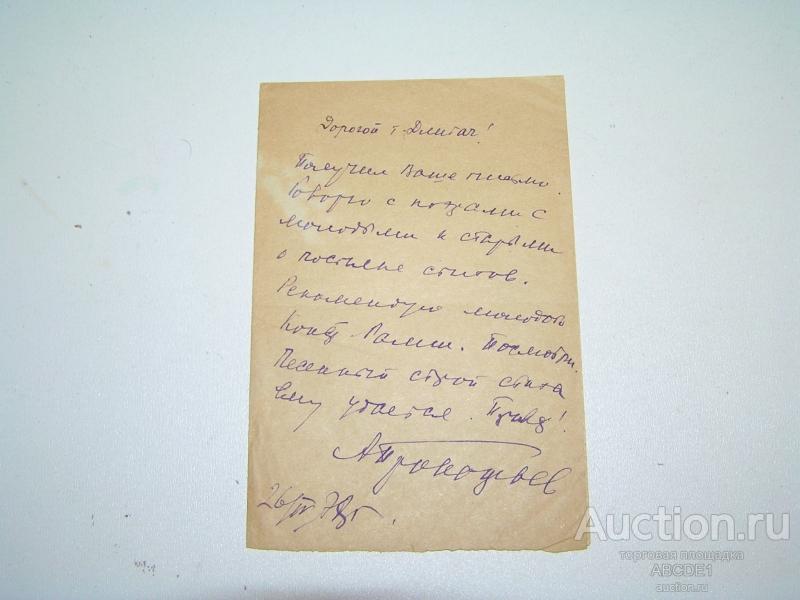 Дорогой т. Длигач!
Получил Ваше письмо.
Говорю с поэтами с
молодыми и старыми
о посылке стихов.
Рекомендую молодого
поэта Посмотри.
Песенный строй стиха
ему удается.
АПрокофьев
26/IV г.
Auction.ru
торговая площадка
ABCDE1
auction.ru